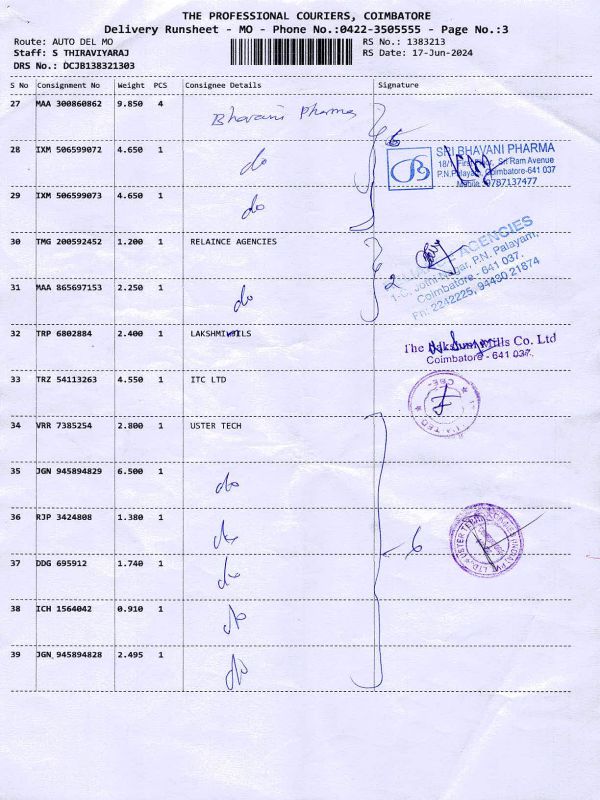 THE PROFESSIONAL COURIERS, COIMBATORE
Delivery Runsheet - MO - Phone No.:0422-3505555 - Page No.:3
Route: AUTO DEL MO RS No.: 1383213
Staff: S THIRAVIYARAJ RS Date: 17-Jun-2024
DRS No.: DCJB138321303
S No Consignment No Weight PCS Consignee Details Signature
27 MAA 300860862 9.850 4 Bhavani Pharma
6
28 IXM 506599072 4.650 1 do
SRI BHAVANI PHARMA
Sri Ram Avenue
Coimbatore-641 037
Mobile: 9787137477
29 IXM 506599073 4.650 1 do
30 TMG 200592452 1.200 1 RELAINCE AGENCIES
2
AGENCIES
Jothi Nagar, P.N. Palayam,
Coimbatore - 641 037.
Ph: 2242225, 94430 21874
31 MAA 865697153 2.250 1 do
32 TRP 6802884 2.400 1 LAKSHMI MILLS
The Lakshmi Mills Co. Ltd
Coimbatore - 641 037.
33 TRZ 54113263 4.550 1 ITC LTD
34 VRR 7385254 2.800 1 USTER TECH
35 JGN 945894829 6.500 1 do
36 RJP 3424808 1.380 1 do
6
USTER TECHNOLOGIES (INDIA) PVT. LTD.
37 DDG 695912 1.740 1 do
38 ICH 1564042 0.910 1 do
39 JGN 945894828 2.495 1 do